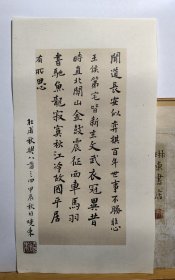 聞道長安似弈棋百年世事不勝悲
王侯第宅皆新主文武衣冠異昔
時直北關山金鼓震征西車馬羽
書馳魚龍寂寞秋江冷故國平居
有所思
杜甫秋興八首之四甲辰秋月